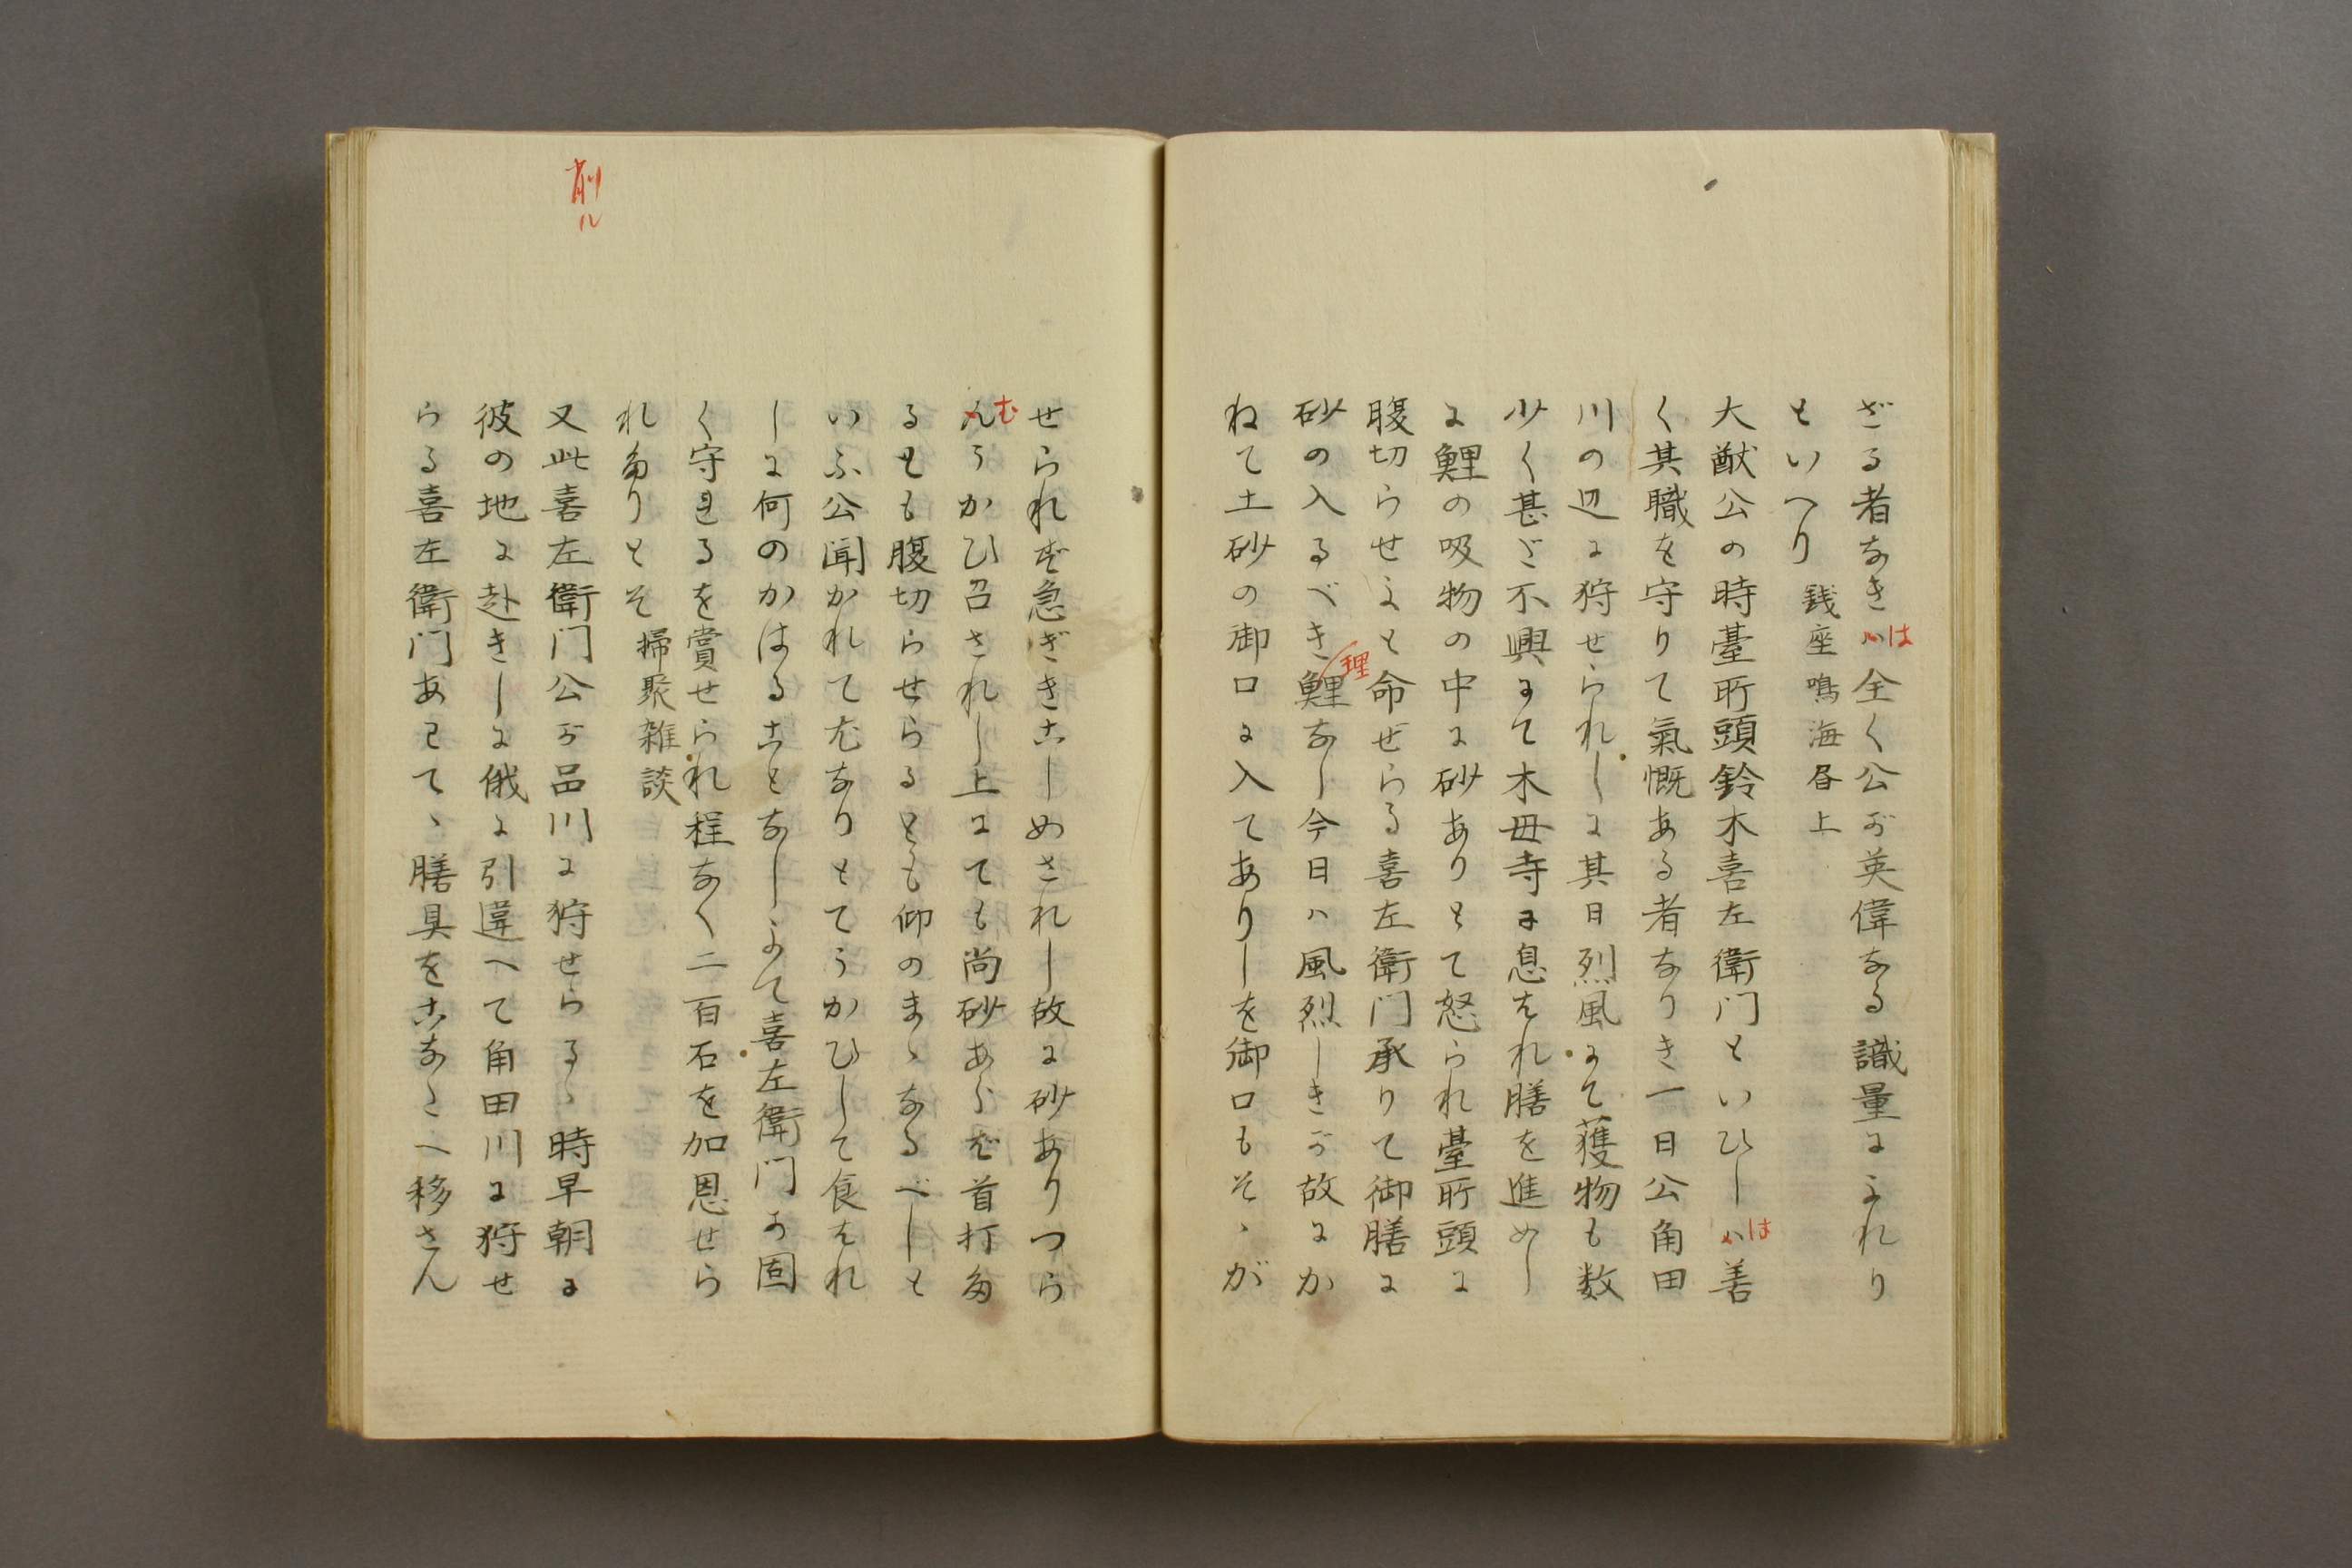 ざる者なきは全く公が英偉なる識量によれり
といへり 銭座鳴海昼上
大猷公の時臺所頭鈴木喜左衛門といひしは善
く其職を守りて氣慨ある者なりき一日公角田
川の辺に狩せられしに其日烈風にて獲物も数
少く甚ど不興にて木母寺に息はれ膳を進めし
に鯉の吸物の中に砂ありとて怒られ臺所頭に
腹切らせよと命ぜらる喜左衛門承りて御膳に
砂の入るべき鯉理なし今日ハ風烈しきが故にか
ねて土砂の御口に入てありしを御口もそゝが
せられず急ぎきこしめされし故に砂ありつら
んむうかひ召されし上にても尚砂あらば首打た
るとも腹切らせらるとも仰のまゝなるべしと
いふ公聞かれて尤なりとてうかひして食はれ
しに何のかはることなしよて喜左衛門が固
く守れるを賞せられ程なく二百石を加恩せら
れたりとそ 掃聚雑談
削ル
又此喜左衛门公が品川に狩せらるゝ時早朝に
彼の地に赴きしに俄に引違へて角田川に狩せ
らる喜左衛门あわてゝ膳具をこなたへ移さん